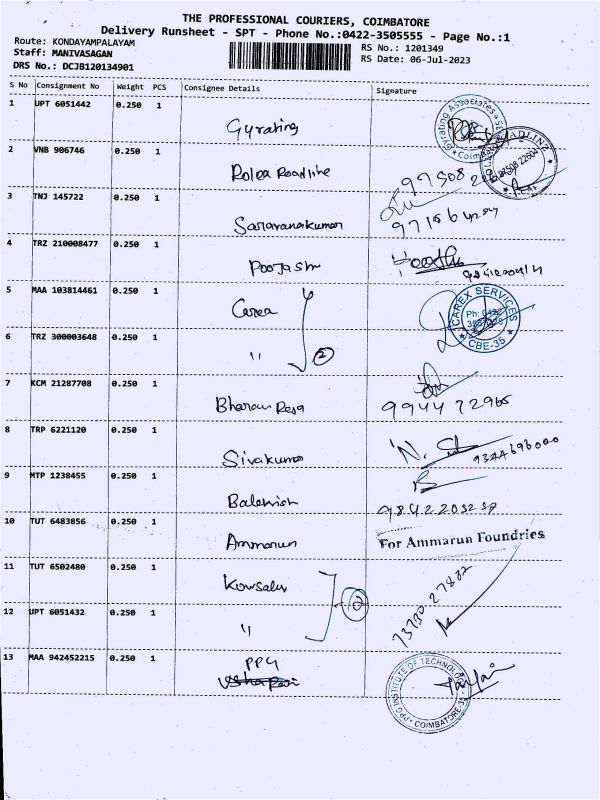 THE PROFESSIONAL COURIERS, COIMBATORE
Delivery Runsheet - SPT - Phone No.:0422-3505555 - Page No.:1
Route: KONDAYAMPALAYAM
Staff: MANIVASAGAN
DRS No.: DCJB120134901
RS No.: 1201349
RS Date: 06-Jul-2023
S No Consignment No Weight PCS Consignee Details Signature
1 UPT 6051442 0.250 1 Gyrating
2 VNB 906746 0.250 1 Rolex Roadline
3 TNJ 145722 0.250 1 Saravanakumar
4 TRZ 210008477 0.250 1 Pooja
5 MAA 103814461 0.250 1 Carex
CAREX SERVICES
Ph: 0422
CBE-35
6 TRZ 300003648 0.250 1 " 2
7 KCM 21287708 0.250 1 Bharan 99447 72965
8 TRP 6221120 0.250 1 Sivakumar 9344696000
9 MTP 1238455 0.250 1
10 TUT 6483856 0.250 1 Ammarun
For Ammarun Foundries
11 TUT 6502480 0.250 1 2
73730 27882
12 UPT 6051432 0.250 1 "
13 MAA 942452215 0.250 1 PPG
PPG INSTITUTE OF TECHNOLOGY
COIMBATORE-35